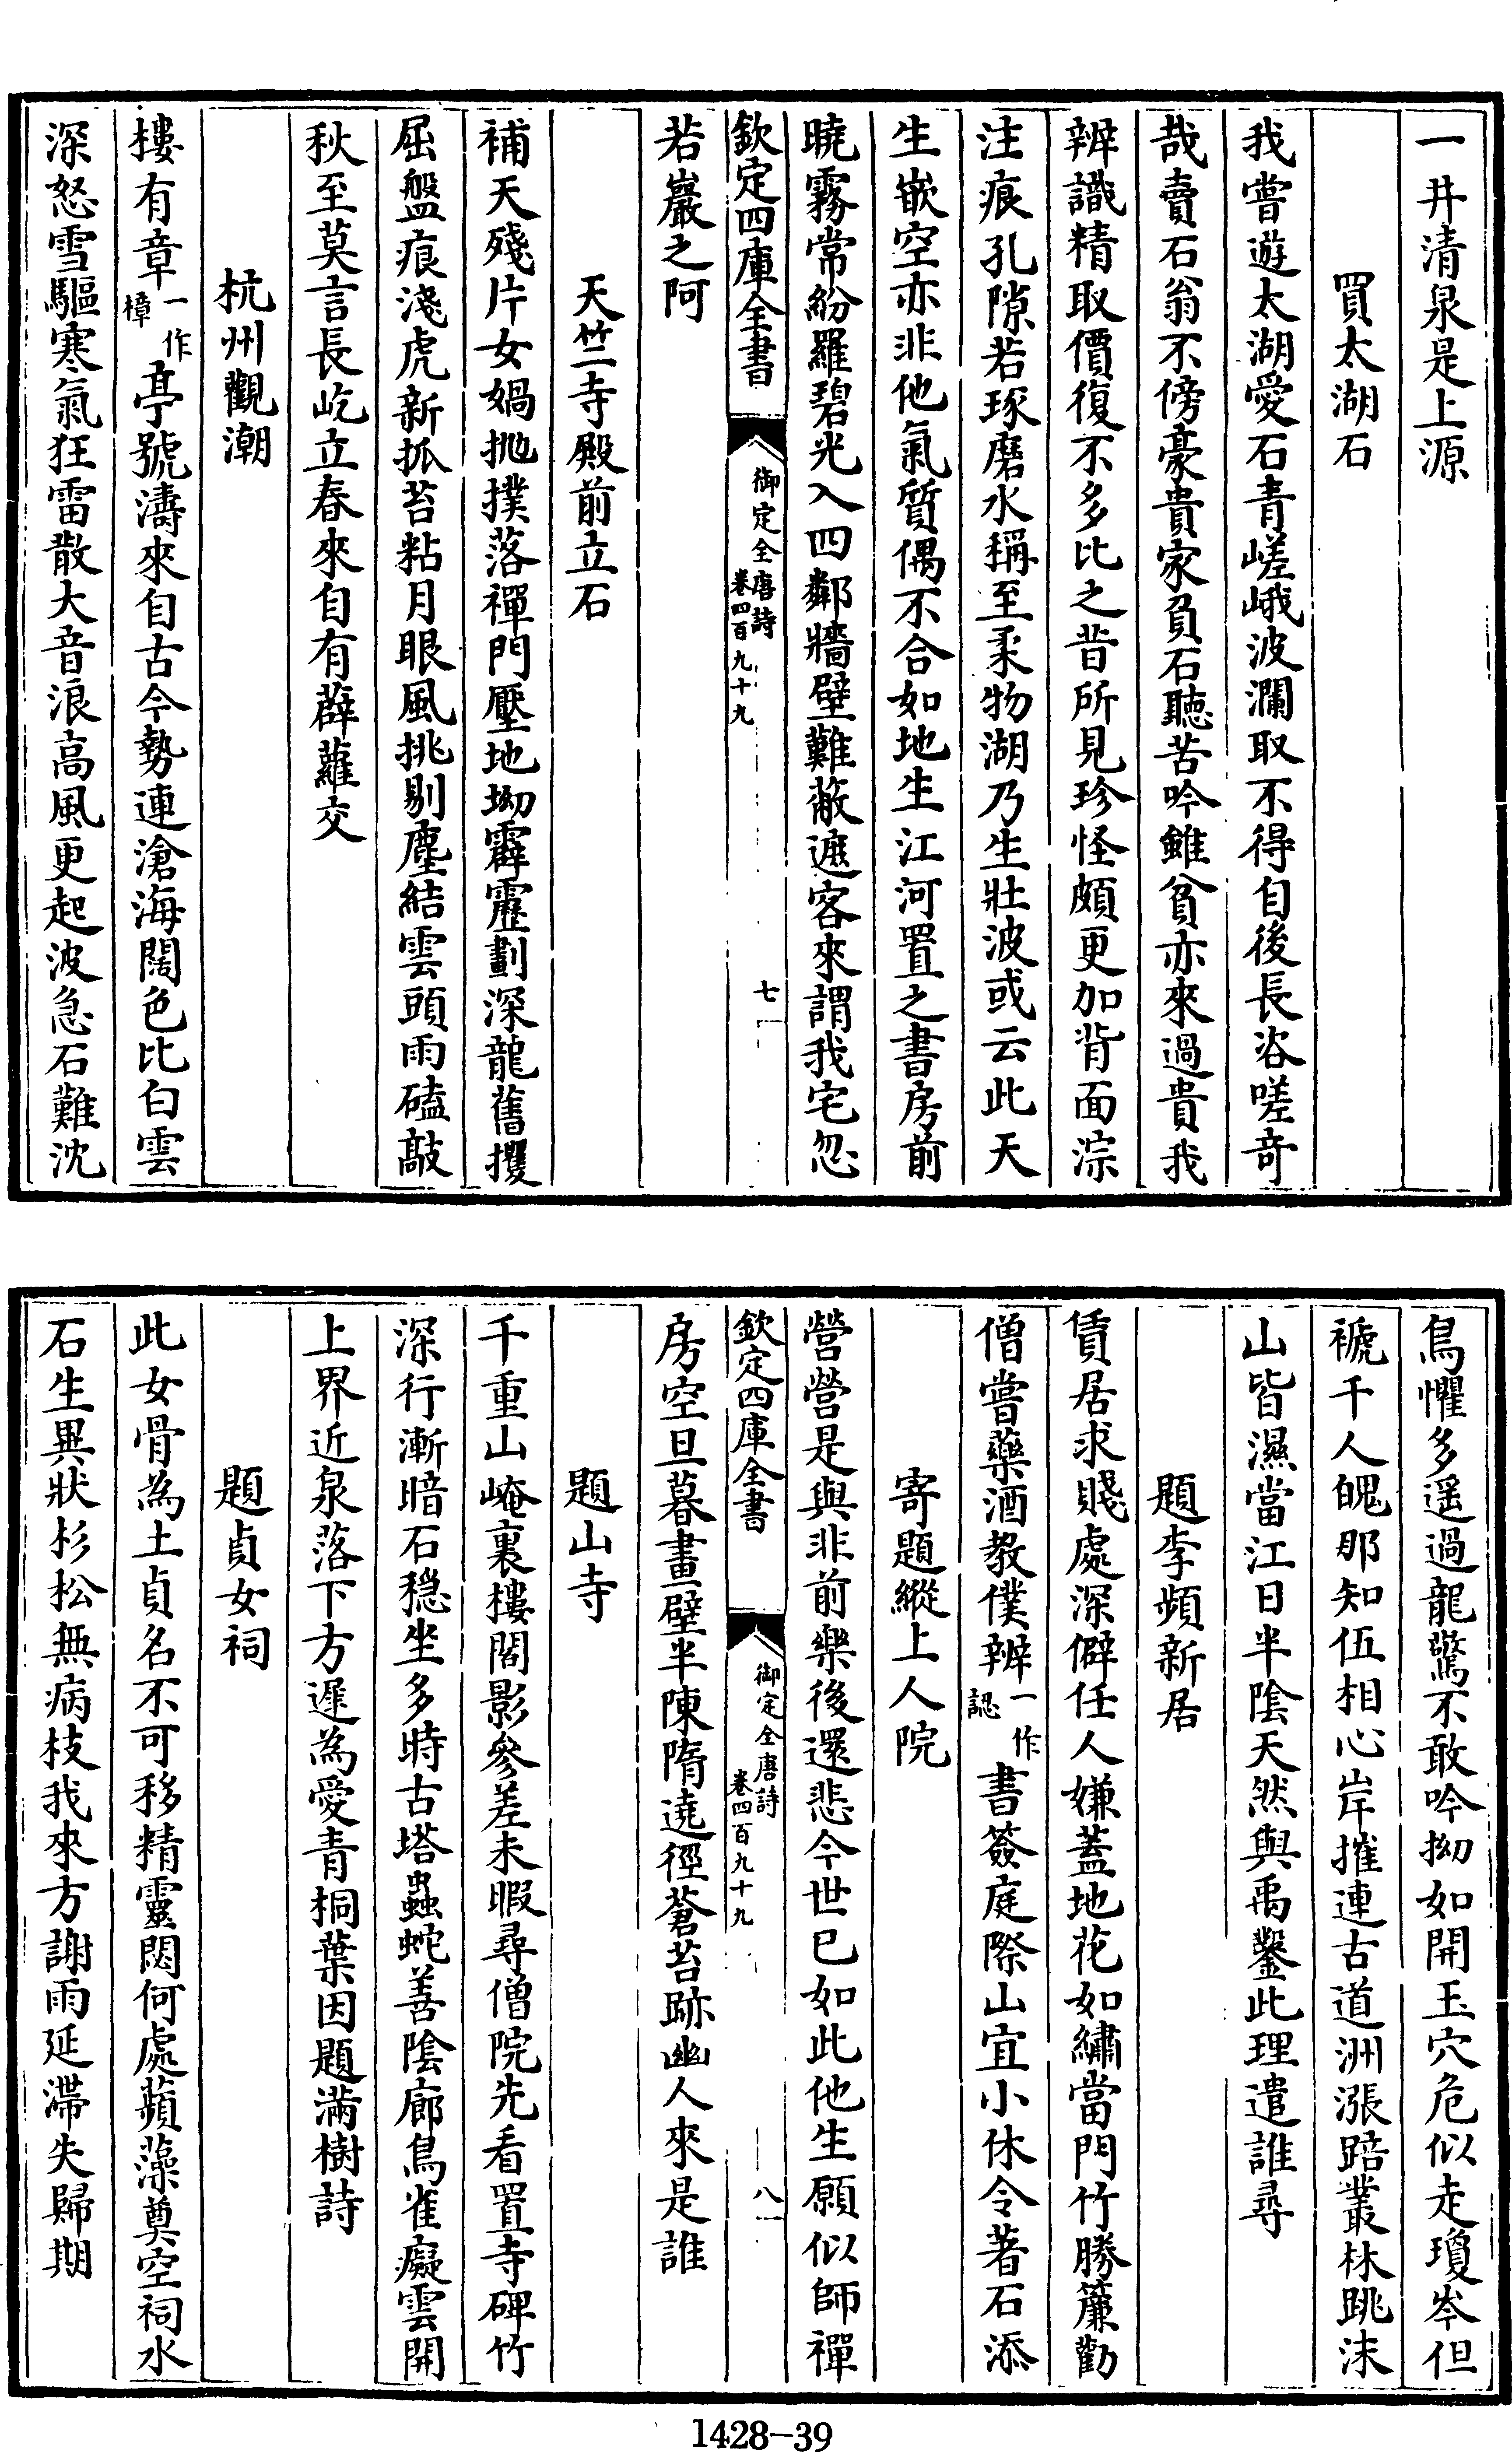 一井清泉是上源
買太湖石
我嘗遊太湖愛石青嵯峨波瀾取不得自後長咨嗟奇
哉賣石翁不傍豪貴家負石聽苦吟雖貧亦來過貴我
辨識精取價復不多比之昔所見珍怪頗更加背面淙
注痕孔隙若琢磨水稱至柔物湖乃生壯波或云此天
生嵌空亦非他氣質偶不合如地生江河置之書房前
曉霧常紛羅碧光入四鄰牆壁難蔽遮客來謂我宅忽
欽定四庫全書
御定全唐詩
卷四百九十九
七
若巖之阿
天竺寺殿前立石
補天殘片女媧抛撲落禪門壓地坳霹靂劃深龍舊攫
屈盤痕淺虎新抓苔粘月眼風挑剔塵結雲頭雨磕敲
秋至莫言長屹立春來自有薜蘿交
杭州觀潮
樓有章一作樟亭號濤來自古今勢連滄海闊色比白雲
深怒雪驅寒氣狂雷散大音浪高風更起波急石難沈
鳥懼多遥過龍驚不敢吟拗如開玉穴危似走瓊岑但
褫千人魄那知伍相心岸摧連古道洲漲踣叢林跳沫
山皆濕當江日半陰天然與禹鑿此理遣誰尋
題李頻新居
賃居求賤處深僻任人嫌蓋地花如繡當門竹勝簾勸
僧嘗藥酒教僕辨一作認書簽庭際山宜小休令著石添
寄題縱上人院
營營是與非前樂後還悲今世已如此他生願似師禪
欽定四庫全書
御定全唐詩
卷四百九十九
八
房空旦暮畫壁半陳隋遶徑蒼苔跡幽人來是誰
題山寺
千重山崦裏樓閣影參差未暇尋僧院先看置寺碑竹
深行漸暗石穏坐多時古塔蟲蛇善陰廊鳥雀癡雲開
上界近泉落下方遲為愛青桐葉因題滿樹詩
題貞女祠
此女骨為土貞名不可移精靈閟何處蘋藻奠空祠水
石生異狀杉松無病枝我來方謝雨延滯失歸期
1428-39